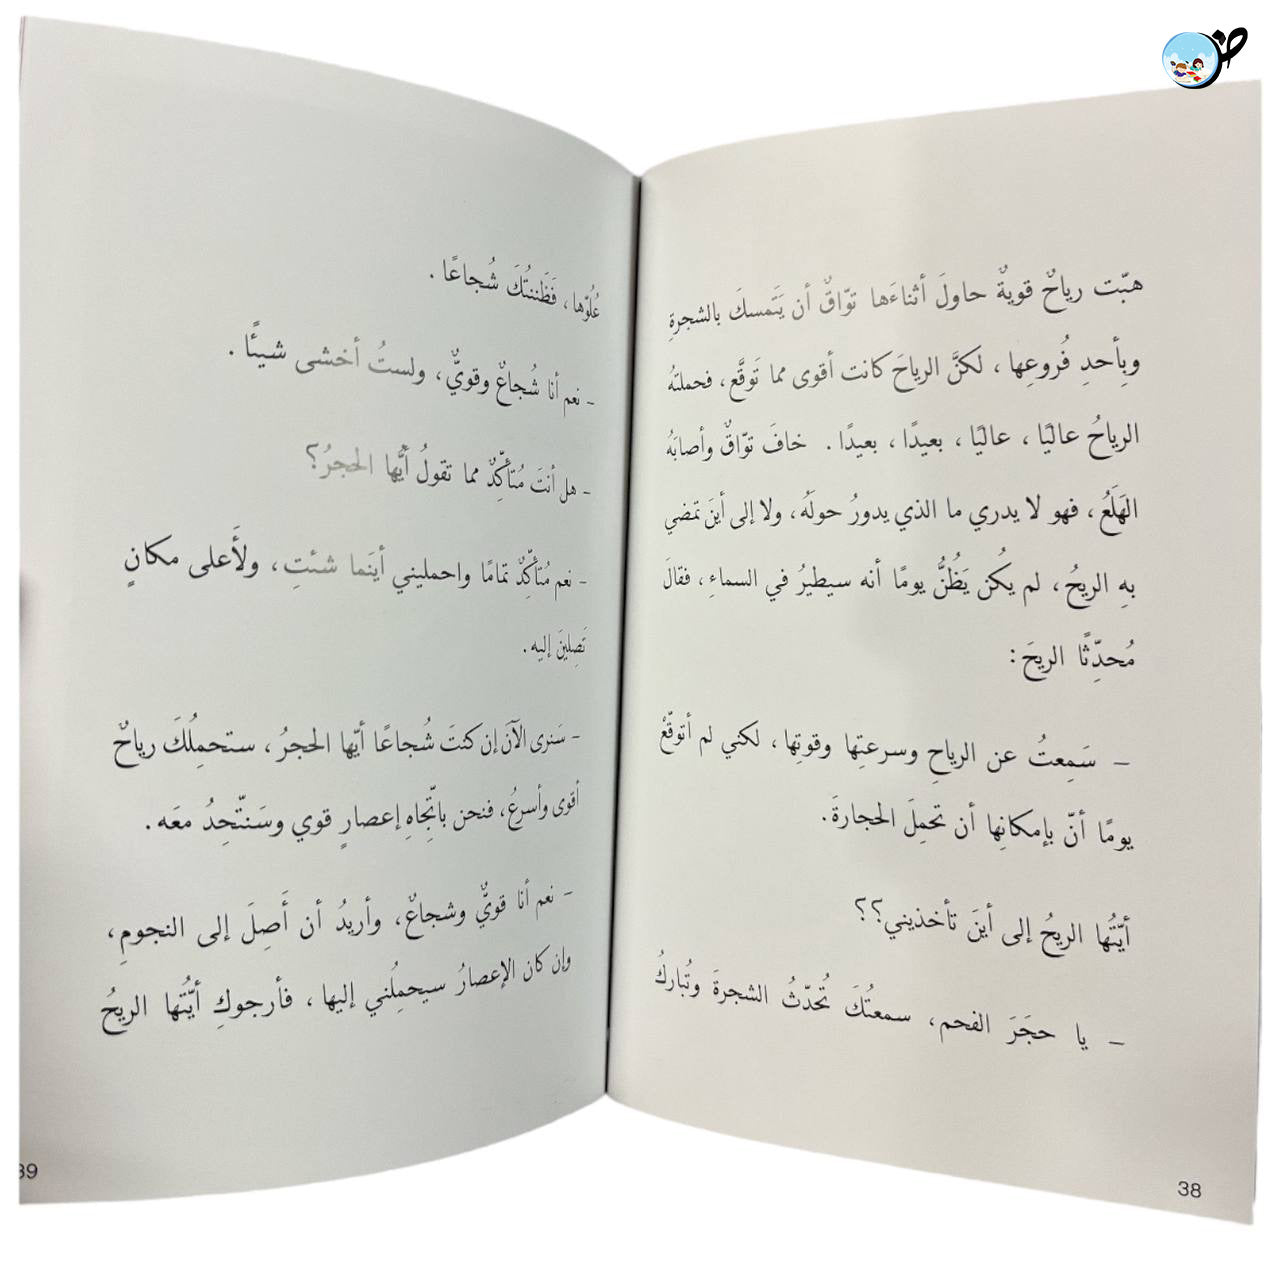 هبّت رياحٌ قويةٌ حاولَ أثناءَها توّاقٌ أن يَتَمسكَ بالشجرةِ
وبِأحدِ فُروعِها ، لكنَّ الرياحَ كانت أقوى مما تَوقَّع ، فحملتهُ
الرياحُ عاليًا ، عاليًا ، بعيدًا ، بعيدًا . خافَ توّاقٌ وأصابَهُ
الهَلَعُ ، فهو لا يدري ما الذي يدورُ حولَهُ ، ولا إلى أينَ تمضي
بهِ الريحُ ، لم يكُن يَظُنُّ يومًا أنه سيطيرُ في السماءِ ، فقالَ
مُحدِّثًا الريحَ :
– سَمِعتُ عن الرياحِ وسرعتِها وقوتِها ، لكني لم أتوقّعْ
يومًا أنّ بإمكانِها أن تحمِلَ الحجارةَ .
أيّتُها الريحُ إلى أينَ تأخذيني؟؟
– يا حجَرَ الفحم ، سمعتُكَ تُحدّثُ الشجرةَ وتُبارِكُ
38
عُلُوّها ، فَظَننتُكَ شُجاعًا .
– نعم أنا شُجاعٌ وقويٌّ ، ولستُ أخشى شيئًا .
– هل أنتَ مُتأكِّدٌ مما تقولُ أيُّها الحجرُ؟
– نعم مُتأكِّدٌ تمامًا واحمليني أينَما شئتِ ، ولأَعلى مكانٍ
تَصِلينَ إليه .
– سَنرى الآنَ إن كنتَ شُجاعًا أيّها الحجرُ ، ستحمِلُكَ رياحٌ
أقوى وأسرعُ ، فنحن باتّجاهِ إعصارٍ قوي وسَنتّحِدُ معَه .
– نعم أنا قويٌّ وشجاعٌ ، وأريدُ أن أَصِلَ إلى النجومِ ،
وإن كان الإعصارُ سيحمِلُني إليها ، فأرجوكِ أيّتُها الريحُ
39
ض